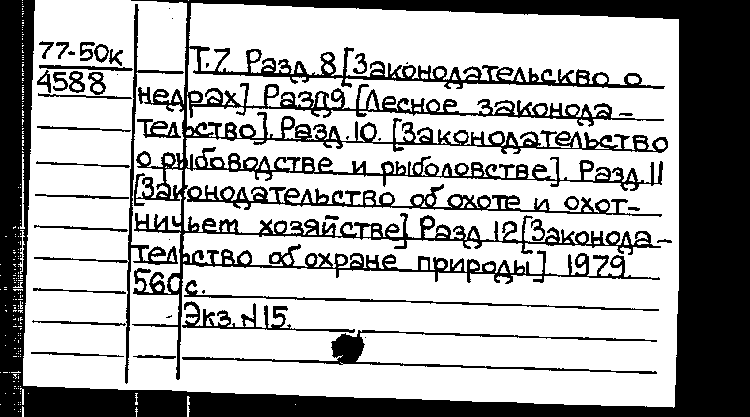 77-50к
4588
Т.7. Разд. 8 [Законодательскво о
недрах] Разд 9 [Лесное законода-
тельство]. Разд. 10. [Законодательство
о рыбоводстве и рыболовстве]. Разд. 11
[Законодательство об охоте и охот-
ничьем хозяйстве] Разд 12 [Законода-
тельство об охране природы] 1979.
560 с.
Экз. N 15.